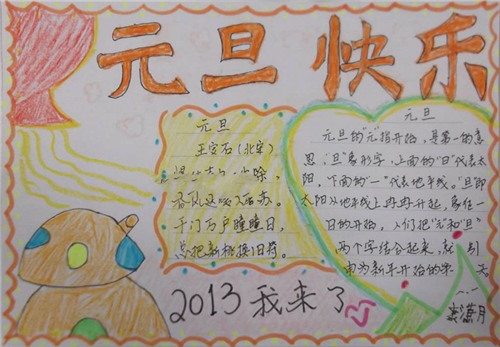 元旦快乐
元旦
王安石(北宋)
春风送暖入屠苏。
千门万户瞳瞳日,
总把新桃换旧符。
元旦
元旦的“元”指开始,是第一的意
思,“旦”象形字,上面的“日”代表太
阳,下面的“一”代表地平线。“旦”即
太阳从地平线上冉冉升起,象征一
日的开始,人们把“元”和“旦”
两个字结合起来,就引
申为新年开始的第一天
2013我来了